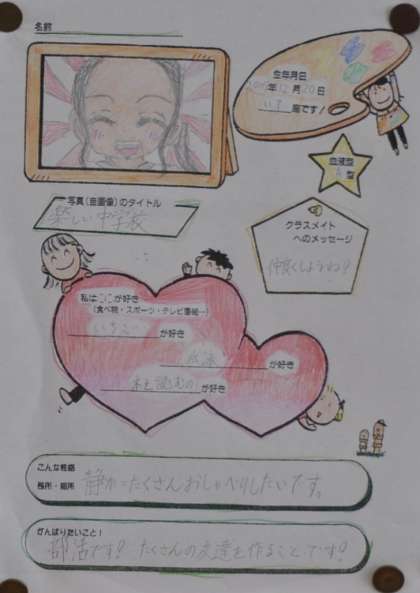 名前
生年月日
年12月20日
いて座です！
血液型
A型
写真(自画像)のタイトル
楽しい中学校
クラスメイト
へのメッセージ
仲良くしようね！
私はここが好き
(食べ物・スポーツ・テレビ番組…)
いちごが好き
が好き
本を読むのが好き
こんな性格
長所・短所
静か=たくさんおしゃべりしたいです。
がんばりたいこと！
部活です！ たくさんの友達を作ることです！